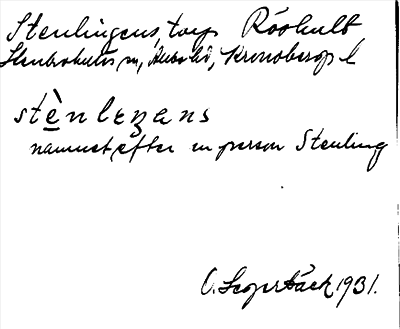 Stenlingens, torp Röshult
Stenbrohults sn, Allbo hd, Kronobergs l
stènleŋans
namnet efter en person Stenling
O. Lagerbäck 1931.